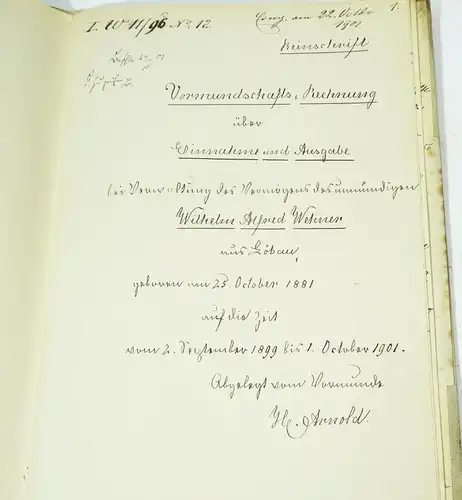 I. W 11/96 No 12.
Eing. am 22. Octbr
1901.
1.
Reinschrift
Vormundschafts-Rechnung
über
Einnahme und Ausgabe
bei Verwaltung des Vermögens des unmündigen
Wilhelm Alfred Wehner
aus Löbau,
geboren am 25. October 1881
auf die Zeit
vom 2. September 1899 bis 1. October 1901.
Abgelegt vom Vormunde
H. Arnold.